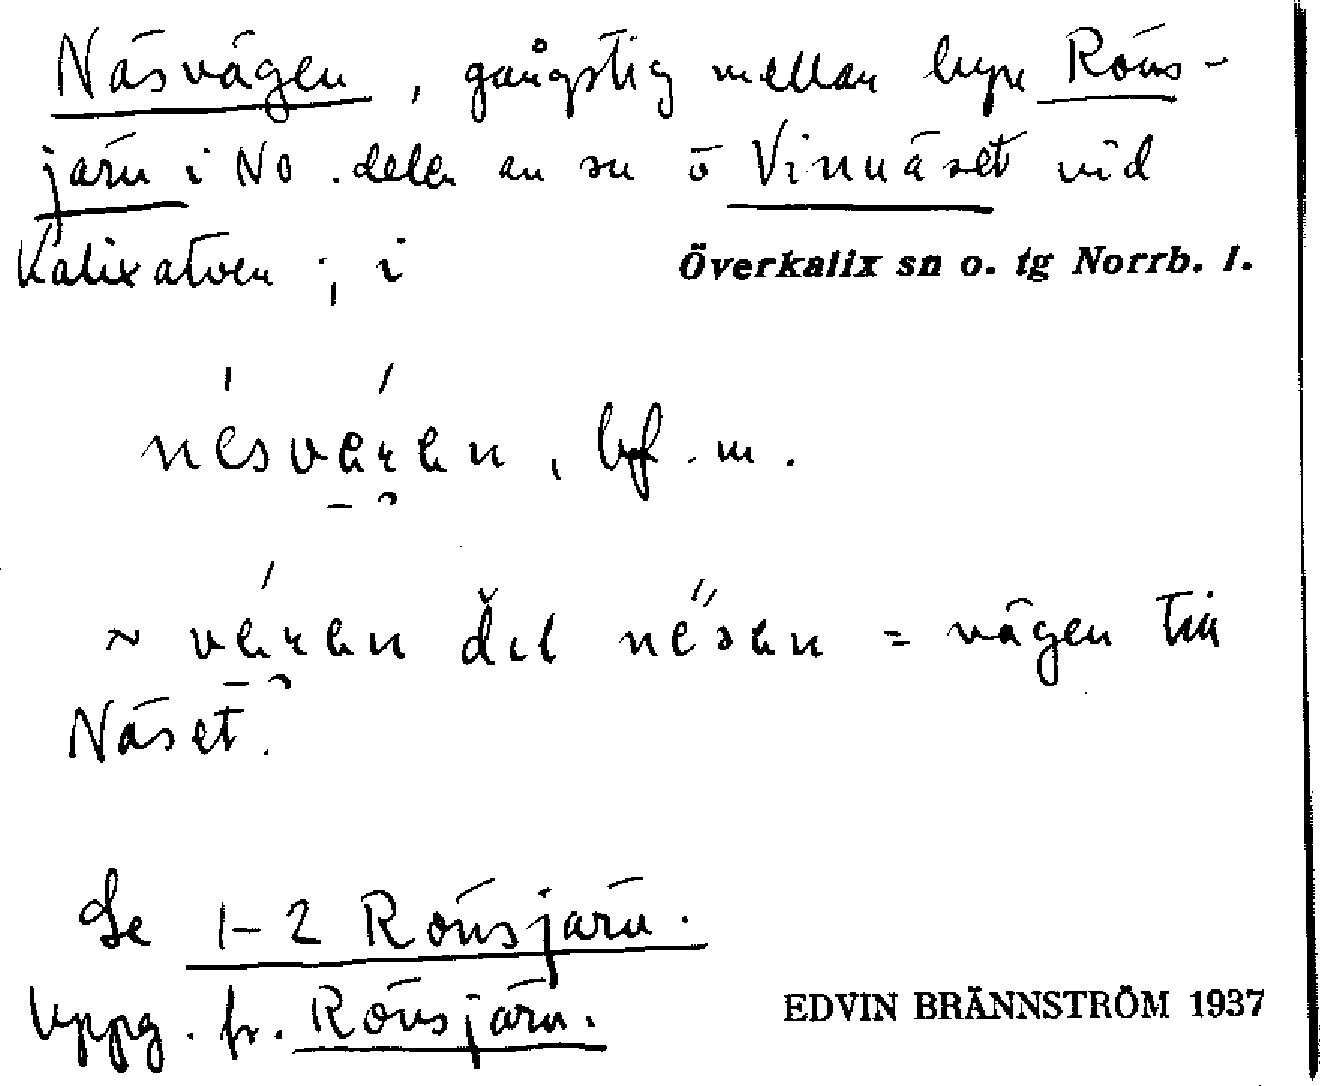 Näsvägen, gångstig mellan byn Röns-
järn i NO. delen av sn o Vinnäset vid
Kalixälven ; i Överkalix sn o. tg Norrb. l.
bf. m.
~ = vägen till
Näset.
Se 1-2 Rönsjärn.
Uppg. fr. Rönsjärn. EDVIN BRÄNNSTRÖM 1937